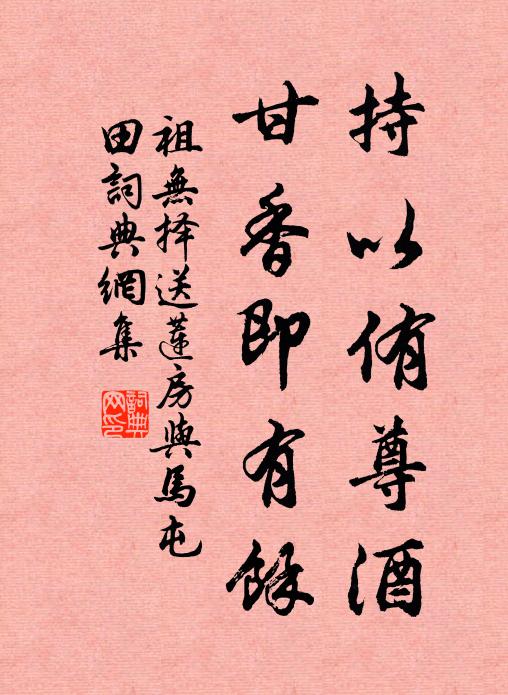 持以侑尊酒
甘香即有餘
祖無择送蓮房與馬屯
田詞典網集
詞典
网印